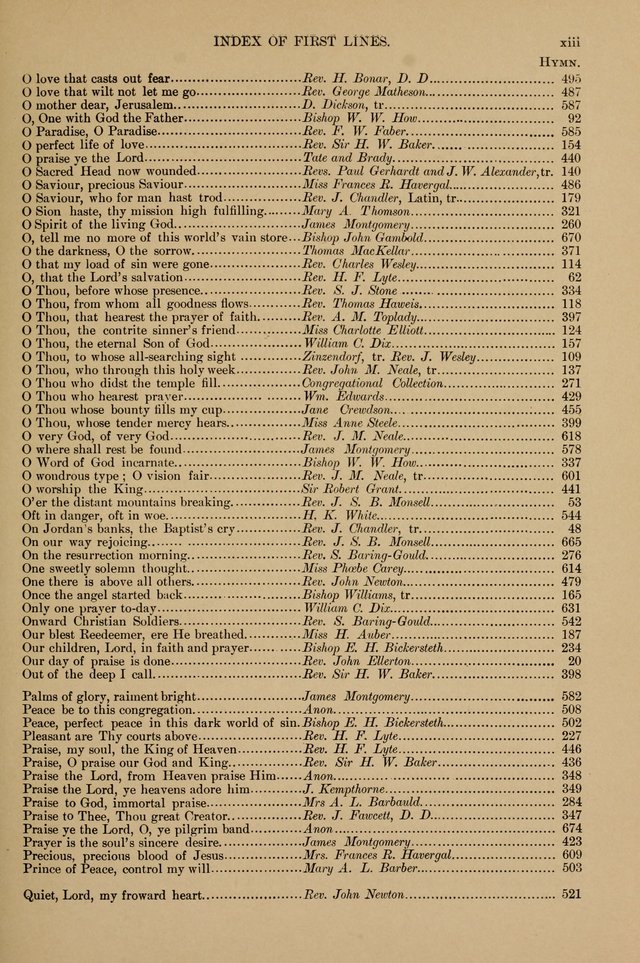 INDEX OF FIRST LINES. xiii
HYMN.
O love that casts out fear Rev. H. Bonar, D. D 495
O love that wilt not let me go Rev. George Matheson 487
O mother dear, Jerusalem D. Dickson, tr 587
O, One with God the Father Bishop W. W. How 92
O Paradise, O Paradise Rev. F. W. Faber 585
O perfect life of love Rev. Sir H. W. Baker 154
O praise ye the Lord Tate and Brady 440
O Sacred Head now wounded Revs. Paul Gerhardt and J. W. Alexander, tr. 140
O Saviour, precious Saviour Miss Frances R. Havergal 486
O Saviour, who for man hast trod Rev. J. Chandler, Latin, tr. 179
O Sion haste, thy mission high fulfilling Mary A. Thomson 321
O Spirit of the living God James Montgomery 260
O, tell me no more of this world's vain store Bishop John Gambold 670
O the darkness, O the sorrow Thomas MacKellar 371
O that my load of sin were gone Rev. Charles Wesley 114
O, that the Lord's salvation Rev. H. F. Lyte 62
O Thou, before whose presence Rev. S. J. Stone 334
O Thou, from whom all goodness flows Rev. Thomas Haweis 118
O Thou, that hearest the prayer of faith Rev. A. M. Toplady 397
O Thou, the contrite sinner's friend Miss Charlotte Elliott 124
O Thou, the eternal Son of God William C. Dix 157
O Thou, to whose all-searching sight Zinzendorf, tr. Rev. J. Wesley 109
O Thou, who through this holy week Rev. John M. Neale, tr 137
O Thou who didst the temple fill Congregational Collection 271
O Thou who hearest prayer Wm. Edwards 429
O Thou whose bounty fills my cup Jane Crewdson 455
O Thou, whose tender mercy hears Miss Anne Steele 399
O very God, of very God Rev. J. M. Neale 618
O where shall rest be found James Montgomery 578
O Word of God incarnate Bishop W. W. How 337
O wondrous type ; O vision fair Rev. J. M. Neale, tr 601
O worship the King Sir Robert Grant 441
O'er the distant mountains breaking Rev. J. S. B. Monsell 53
Oft in danger, oft in woe H. K. White 544
On Jordan's banks, the Baptist's cry Rev. J. Chandler, tr. 48
On our way rejoicing Rev. J. S. B. Monsell 665
On the resurrection morning Rev. S. Baring-Gould 276
One sweetly solemn thought Miss Phœbe Carey 614
One there is above all others Rev. John Newton 479
Once the angel started back Bishop Williams, tr 165
Only one prayer to-day William C. Dix 631
Onward Christian Soldiers Rev. S. Baring-Gould 542
Our blest Reedeemer, ere He breathed Miss H. Auber 187
Our children, Lord, in faith and prayer Bishop E. H. Bickersteth 234
Our day of praise is done Rev. John Ellerton 20
Out of the deep I call Rev. Sir H. W. Baker 398
Palms of glory, raiment bright James Montgomery 582
Peace be to this congregation Anon. 508
Peace, perfect peace in this dark world of sin. Bishop E. H. Bickersteth 502
Pleasant are Thy courts above Rev. H. F. Lyte 227
Praise, my soul, the King of Heaven Rev. H. F. Lyte 446
Praise, O praise our God and King Rev. Sir H. W. Baker 436
Praise the Lord, from Heaven praise Him Anon. 348
Praise the Lord, ye heavens adore him J. Kempthorne 349
Praise to God, immortal praise Mrs A. L. Barbauld 284
Praise to Thee, Thou great Creator Rev. J. Fawcett, D. D. 347
Praise ye the Lord, O, ye pilgrim band Anon 674
Prayer is the soul's sincere desire James Montgomery 423
Precious, precious blood of Jesus Mrs. Frances R. Havergal 609
Prince of Peace, control my will Mary A. L. Barber 503
Quiet, Lord, my froward heart Rev. John Newton 521